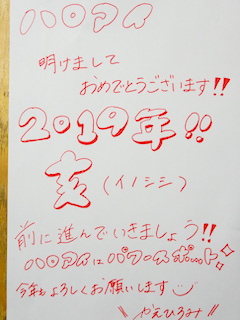 ハロアイ
明けまして
おめでとうございます!!
2019年!!
亥(イノシシ)
前に進んでいきましょう!!
ハロアイはパワースポット
今年もよろしくお願いします
\\ やえひろみ //